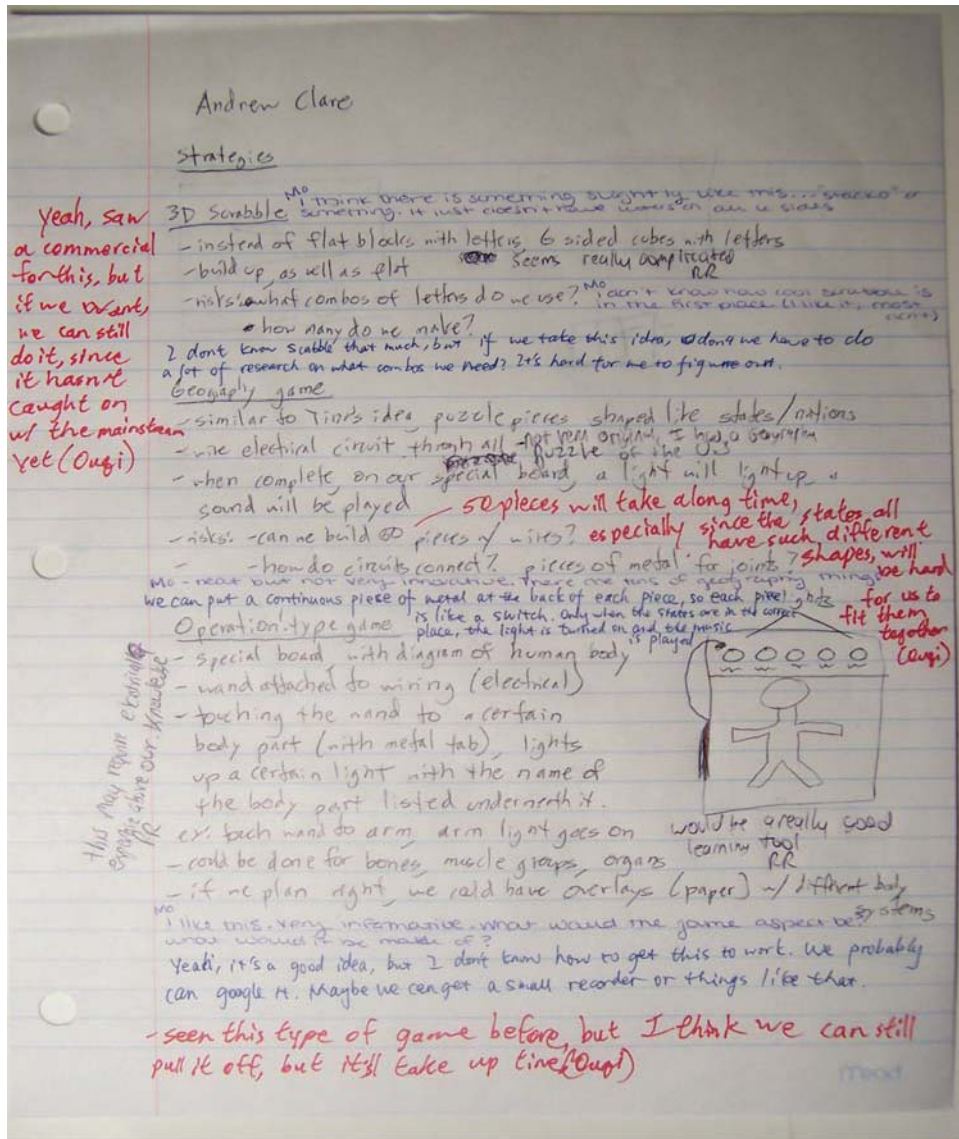 Andrew Clare
Strategies
Mo I think there is something slightly like this... "stacko" or
3D Scrabble something. It just doesn't have words on all 4 sides
Yeah, saw
a commercial
for this, but
if we want,
we can still
do it, since
it hasn't
caught on
w/ the mainstream
yet (Ougi)
- instead of flat blocks with letters, 6 sided cubes with letters
- build up, as well as flat
seems really complicated
RR
- risks: what combos of letters do we use?
Mo I don't know how cool scrabble is
in the first place (I like it, most
don't)
- how many do we make?
I dont know scabble that much, but if we take this idea, dont we have to do
a lot of research on what combos we need? It's hard for me to figure out.
Geography game
- similar to Tina's idea, puzzle pieces shaped like states/nations
- wire electrical circuit through all
- not very original, I had a Geography
puzzle of the US
- when complete, on our special board, a light will light up,
sound will be played
50 pieces will take along time,
especially since the states all
have such different
shapes, will
be hard
for us to
fit them
together
(Ougi)
- risks: - can we build 50 pieces w/ wires?
- how do circuits connect? pieces of metal for joints?
Mo - neat but not very innovative. There are tons of geography things
we can put a continuous piese of metal at the back of each piece, so each piece
is like a switch. Only when the states are in the correct
place, the light is turned on and the music
is played
Operation type game
lights
- special board, with diagram of human body
- wand attached to wiring (electrical)
- touching the wand to a certain
body part (with metal tab), lights
up a certain light with the name of
the body part listed underneath it.
ex: touch wand to arm, arm light goes on
This may require
expertise above our knowledge
RR
would be a really good
learning tool
RR
- could be done for bones, muscle groups, organs
- if we plan right, we could have overlays (paper) w/ different body
systems
Mo I like this. Very informative. What would the game aspect be?
what would it be made of?
Yeah, it's a good idea, but I don't know how to get this to work. We probably
can google it. Maybe we can get a small recorder or things like that.
- seen this type of game before, but I think we can still
pull it off, but it'll take up time (Ougi)
mead